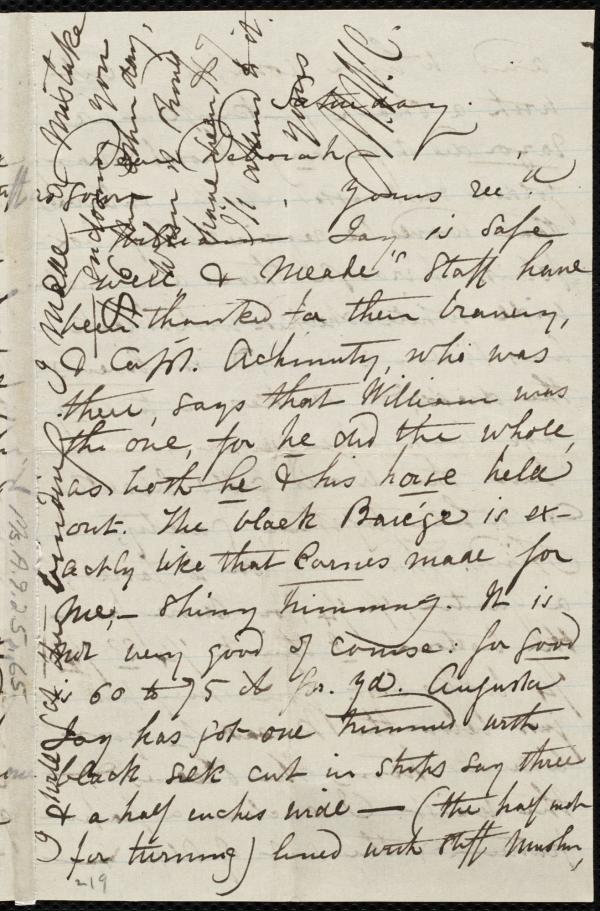 Saturday.
Dear Deborah —
Yours rec'd
William Jay is safe
well & Meade's Staff have
been thanked for their bravery,
& Capt. Achmuty, who was
there, says that William was
the one, for he did the whole,
as both he & his horse held
out. The black Barège is ex-
actly like that Carnes made for
me, — shiny trimming. It is
not very good of course: for good
is 60 to 75 ct pr. yd. Augusta
Jay has got one trimmed with
black silk cut in strips say three
& a half inches wide — (the half inch
for turning) lined with stiff muslin,
219
I made a mistake
endorse
you
John Jay,
have been
I'll attend to it.
Yours
Ms.A.9.2.5